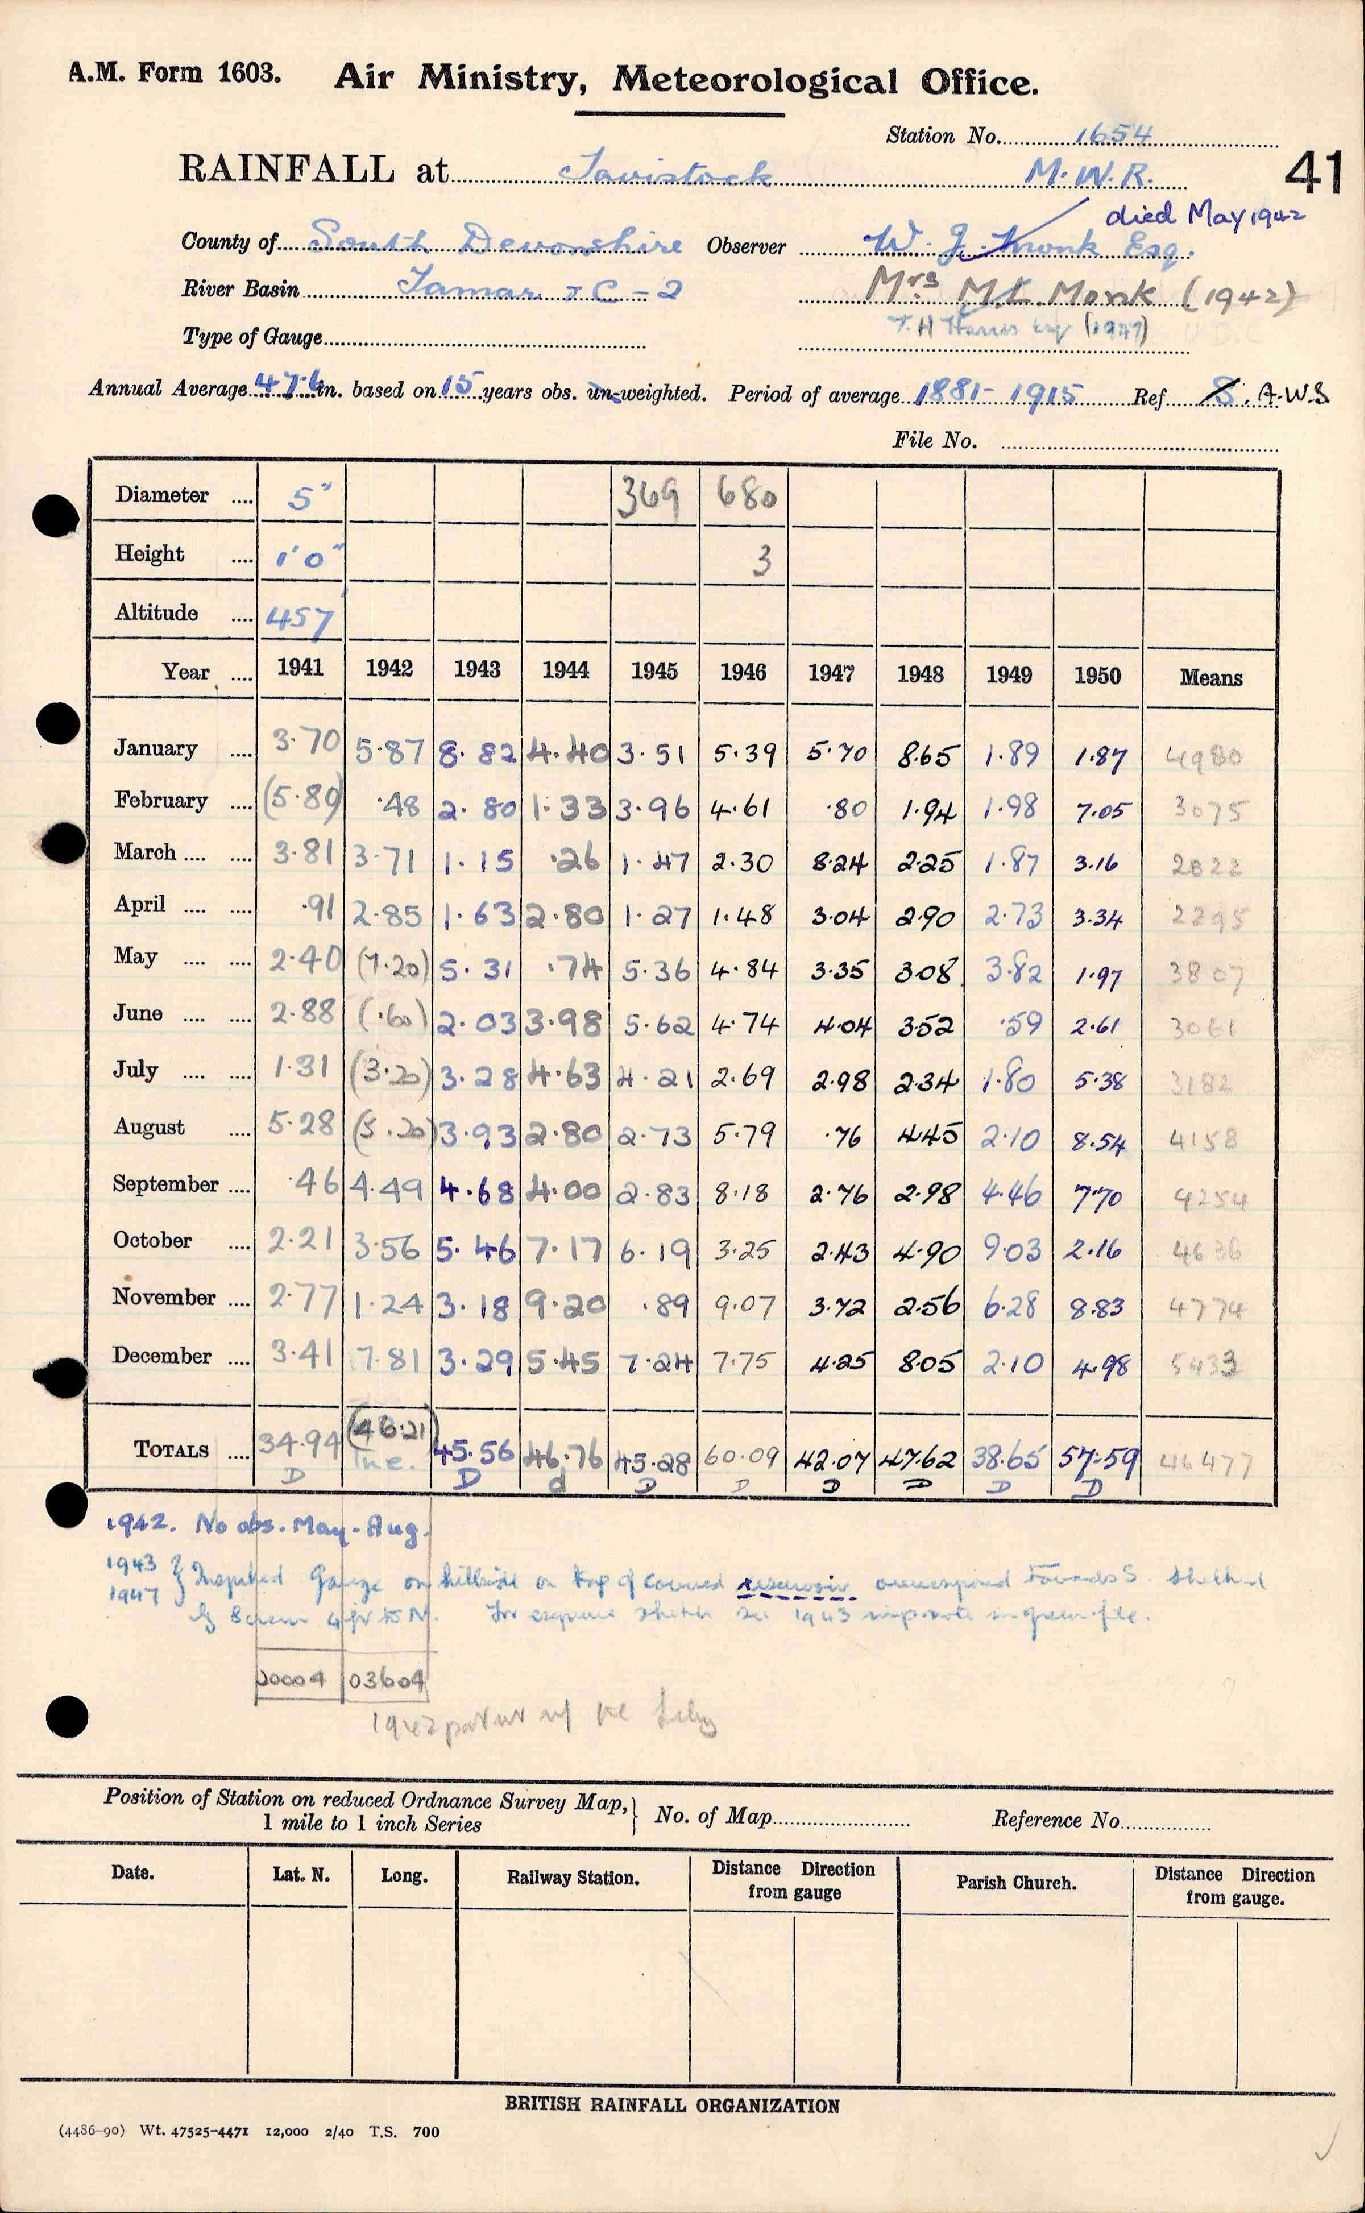 A.M. Form 1603. Air Ministry, Meteorological Office.
Station No. 1654
41
RAINFALL at Tavistock M.W.R.
died May 1942
County of South Devonshire Observer W. J. Monk Esq.
River Basin Tamar C-2 Mrs M.L. Monk (1942)
Type of Gauge T. H Harris Esq (1947)
Annual Average 47.6 in. based on 15 years obs. un-weighted. Period of average 1881-1915 Ref S. A.W.S
File No.
Diameter 5" 369 680
Height 1'0" 3
Altitude 457'
Year 1941 1942 1943 1944 1945 1946 1947 1948 1949 1950 Means
January 3.70 5.87 8.82 4.40 3.51 5.39 5.70 8.65 1.89 1.87 4980
February (5.80) .48 2.80 1.33 3.96 4.61 .80 1.94 1.98 7.05 3075
March 3.81 3.71 1.15 .26 1.47 2.30 8.24 2.25 1.87 3.16 2822
April .91 2.85 1.63 2.80 1.27 1.48 3.04 2.90 2.73 3.34 2295
May 2.40 (7.20) 5.31 .74 5.36 4.84 3.35 3.08 3.82 1.97 3807
June 2.88 (.60) 2.03 3.98 5.62 4.74 4.04 3.52 .59 2.61 3061
July 1.31 (3.20) 3.28 4.63 4.21 2.69 2.98 2.34 1.80 5.38 3182
August 5.28 (5.20) 3.93 2.80 2.73 5.79 .76 4.45 2.10 8.54 4158
September .46 4.49 4.68 4.00 2.83 8.18 2.76 2.98 4.46 7.70 4254
October 2.21 3.56 5.46 7.17 6.19 3.25 2.43 4.90 9.03 2.16 4636
November 2.77 1.24 3.18 9.20 .89 9.07 3.72 2.56 6.28 8.83 4774
December 3.41 7.81 3.29 5.45 7.24 7.75 4.25 8.05 2.10 4.98 5433
TOTALS 34.94 (46.21) 45.56 46.76 45.28 60.09 42.07 47.62 38.65 57.59 46477
D Inc. D d D D D D D D
1942. No obs. May-Aug.
1943 } Inspected Gauge on hillside on top of covered reservoir overexposed towards S. Sheltered
1947 by Screen 4 ft to N. For exposure sketch see 1943 insp. note in green file.
00004 03604
1942
Position of Station on reduced Ordnance Survey Map,} No. of Map Reference No.
1 mile to 1 inch Series
Date. Lat. N. Long. Railway Station. Distance Direction from gauge Parish Church. Distance Direction from gauge.
BRITISH RAINFALL ORGANIZATION
(4486-90) Wt. 47525-4471 12,000 2/40 T.S. 700